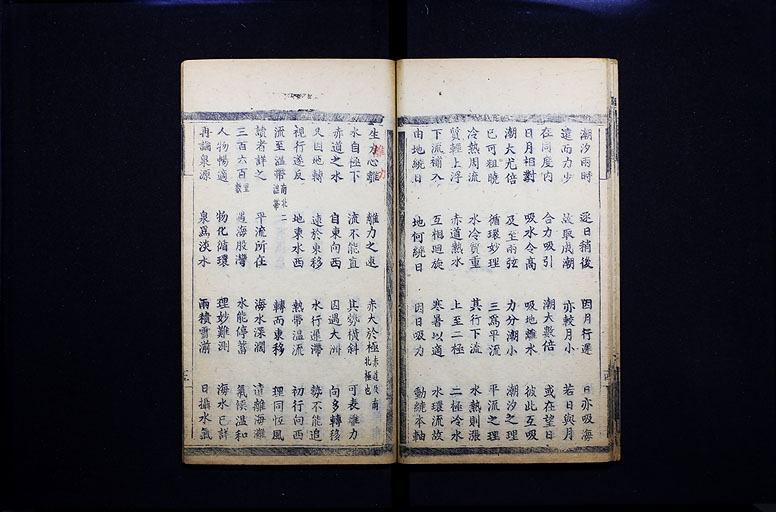 潮汐兩時 逐日稍後 因月行遲 日亦吸海
遠而力少 故取成潮 亦較月小 若日與月
在同度內 合力吸引 潮大數倍 或在望日
日月相對 吸水令高 吸地離水 彼此互吸
潮大尤倍 及至兩弦 力分潮小 潮汐之理
已可粗曉 循環妙理 三為平流 平流之理
冷熱周流 水冷質重 其行下流 水熱則漲
質輕上浮 赤道熱水 上至二極 二極冷水
下流補入 互相迴旋 寒暑以適 水環流故
由地繞日 地何繞日 因日吸力 動繞本軸
生力心離 離力之速 赤大於極 赤道及南北極也
離力
水自極下 流不能直 其勢橫斜 可表離力
赤道之水 自東向西 因遇大洲 向多轉移
又因地轉 遠於東移 水行遲滯 勢不能追
視行遂反 地東水西 熱帶溫流 初行向西
流至溫帶 南北二溫帶 轉而東移 理同恆風
讀者詳之 平流所在 海水深濶 遠離海灘
三百六百 里數 遇海股灣 水能停蓄 氣候溫和
人物暢適 物化循環 理妙難測 海水已詳
再論泉源 泉為淡水 雨積雪消 日攝水氣